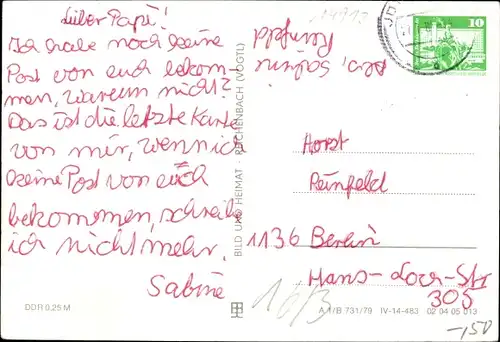 Lieber Papi!
Ich habe noch keine
Post von euch bekom-
men, warum nicht?
Das ist die letzte Karte
von mir, wenn ich
keine Post von euch
bekommen, schreibe
ich nicht mehr.
Sabine
DDR 0,25 M
BILD UND HEIMAT · REICHENBACH (VOGTL)
Abs. Sabine
Reinfeld
10
Horst
Reinfeld
1136 Berlin
Hans-Loch-Str
305
16/3
A 1/B 731/79 IV-14-483 02 04 05 013
-,50